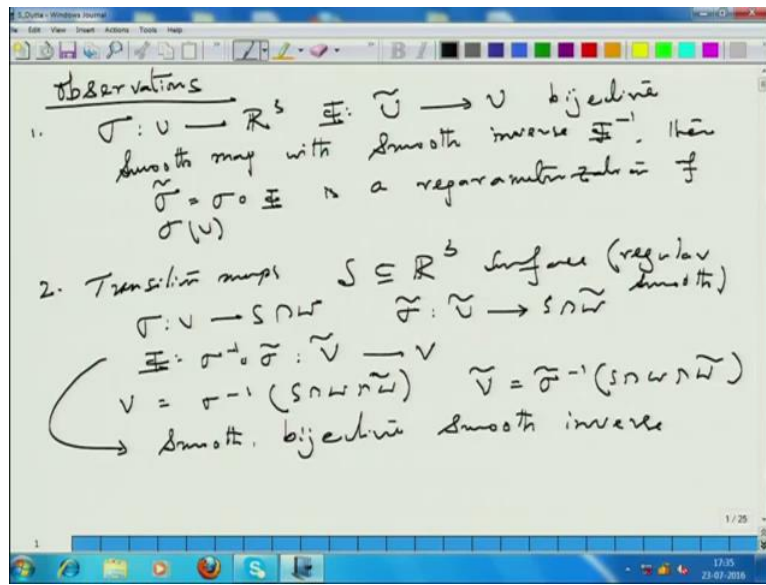 S_Dutta - Windows Journal
File Edit View Insert Actions Tools Help
B I
Observations
1. σ : U → ℝ³ Φ : Ũ → U bijective
smooth map with smooth inverse Φ⁻¹. Then
σ̃ = σ ∘ Φ is a reparametrization of
σ(U)
2. Transition maps S ⊆ ℝ³ surface (regular
smooth)
σ : U → S ∩ W σ̃ : Ũ → S ∩ W̃
Φ : σ⁻¹ ∘ σ̃ : Ṽ → V
V = σ⁻¹ (S ∩ W ∩ W̃) Ṽ = σ̃⁻¹ (S ∩ W ∩ W̃)
→ Smooth, bijective smooth inverse
1 / 25
1
17:35
23-07-2016